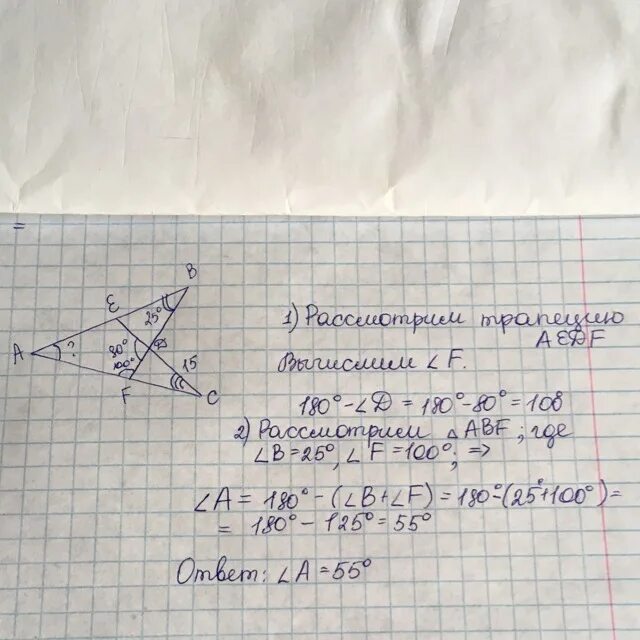 =
B
E
25°
A
?
80°
D
15
100°
F
C
1) Рассмотрим трапецию
AEDF
Вычислим ∠F.
180° - ∠D = 180° - 80° = 100
2) Рассмотрим △ABF; где
∠B = 25°, ∠F = 100°; =>
∠A = 180° - (∠B + ∠F) = 180° - (25° + 100°) =
= 180° - 125° = 55°
Ответ: ∠A = 55°